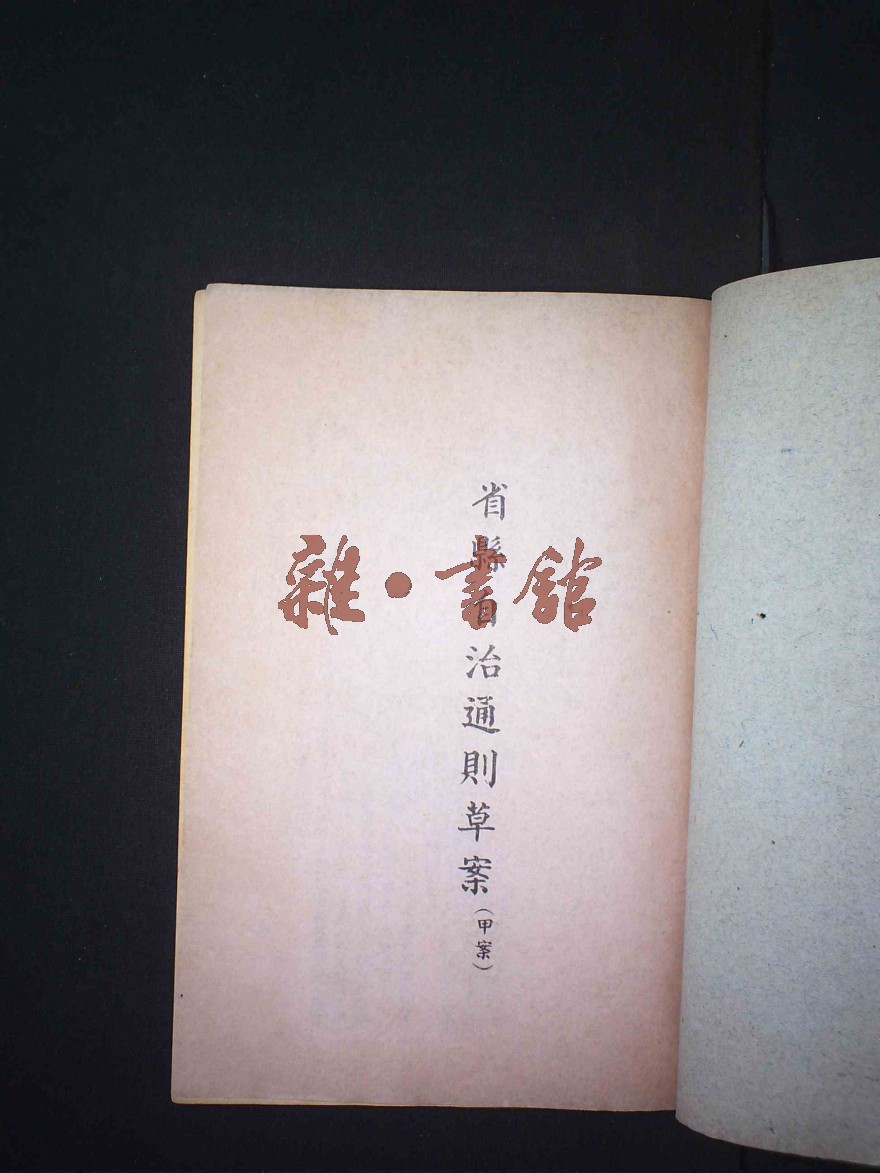 省縣自治通則草案（甲案）
雜·書館